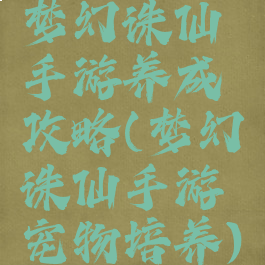 梦幻诛仙
手游养成
攻略(梦幻
诛仙手游
宠物培养)